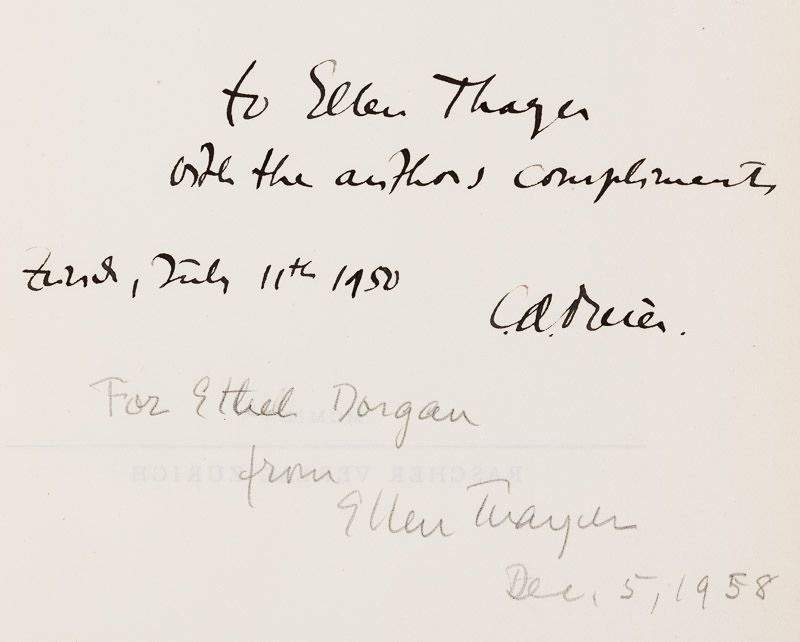 to Ellen Thayer
with the authors compliments
Zürich, July 11th 1950
C.A. Meier.
For Ethel Dorgan
RASCHER VERLAG ZÜRICH
from
Ellen Thayer
Dec. 5, 1958